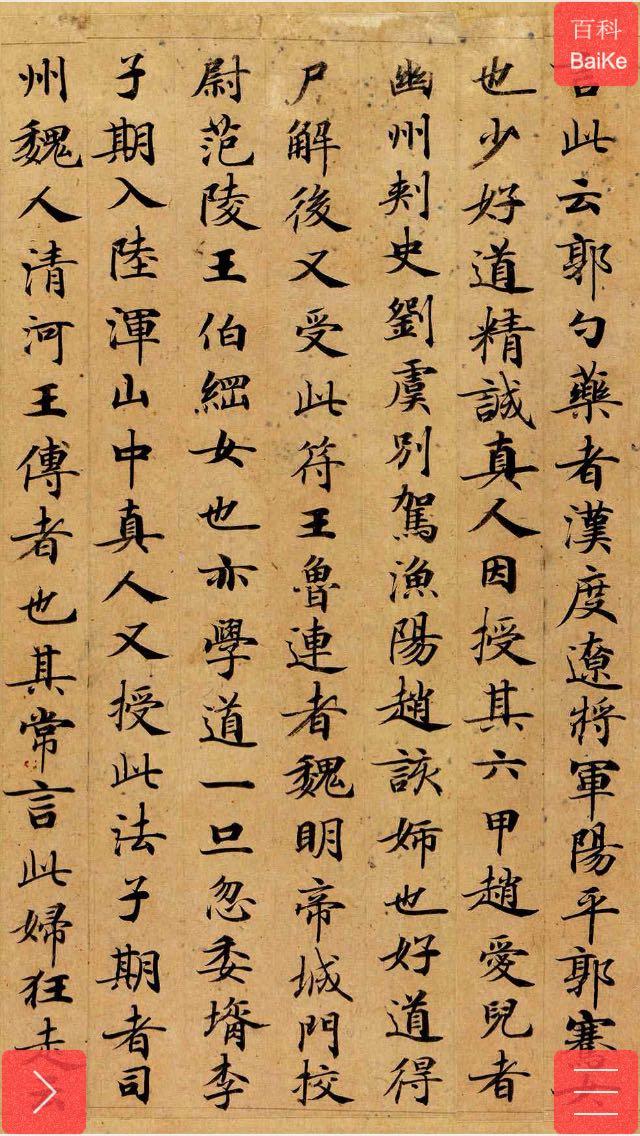 百科
BaiKe
言此云郭勺藥者漢度遼將軍陽平郭騫女
也少好道精誠真人因授其六甲趙愛兒者
幽州刾史劉虞別駕漁陽趙該姉也好道得
尸解後又受此符王魯連者魏明帝城門校
尉范陵王伯綱女也亦學道一旦忽委壻李
子期入陸渾山中真人又授此法子期者司
州魏人清河王傅者也其常言此婦狂走云